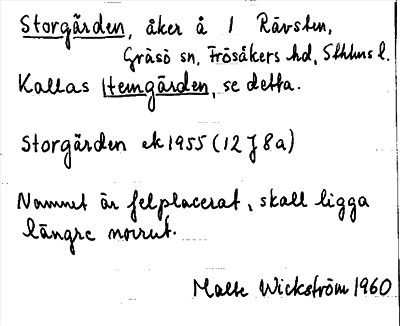 Storgärden, åker å 1 Rävsten,
Gräsö sn, Frösåkers hd, Sthlms l.
Kallas Hemgärden, se detta.
Storgärden ek 1955 (12 J 8a)
Namnet är felplacerat, skall ligga
längre norrut.
Malte Wickström 1960